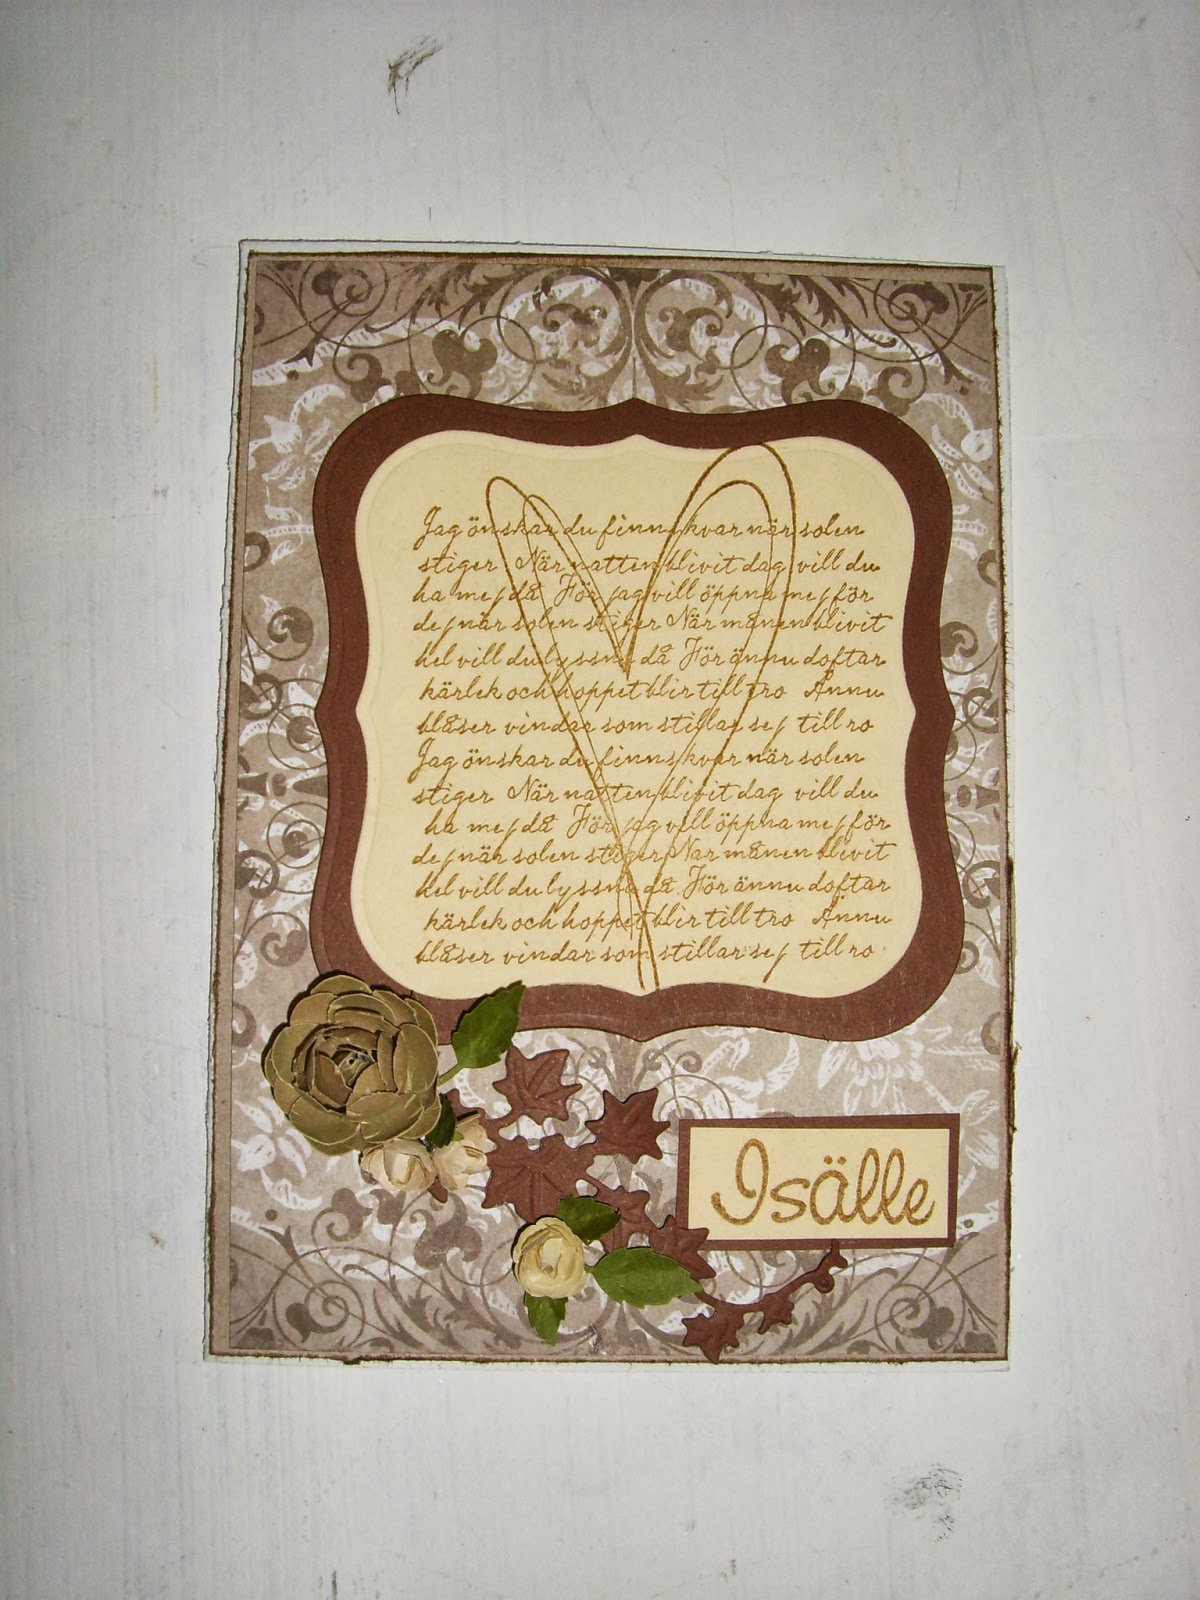 Jag önskar du finns kvar när solen
stiger När natten blivit dag vill du
ha mej då För jag vill öppna mej för
dej när solen stiger När månen blivit
hel vill du lyssna då För ännu doftar
kärlek och hoppet blir till tro Ännu
blåser vindar som stillar sej till ro
Jag önskar du finns kvar när solen
stiger När natten blivit dag vill du
ha mej då För jag vill öppna mej för
dej när solen stiger När månen blivit
hel vill du lyssna då För ännu doftar
kärlek och hoppet blir till tro Ännu
blåser vindar som stillar sej till ro
Isälle